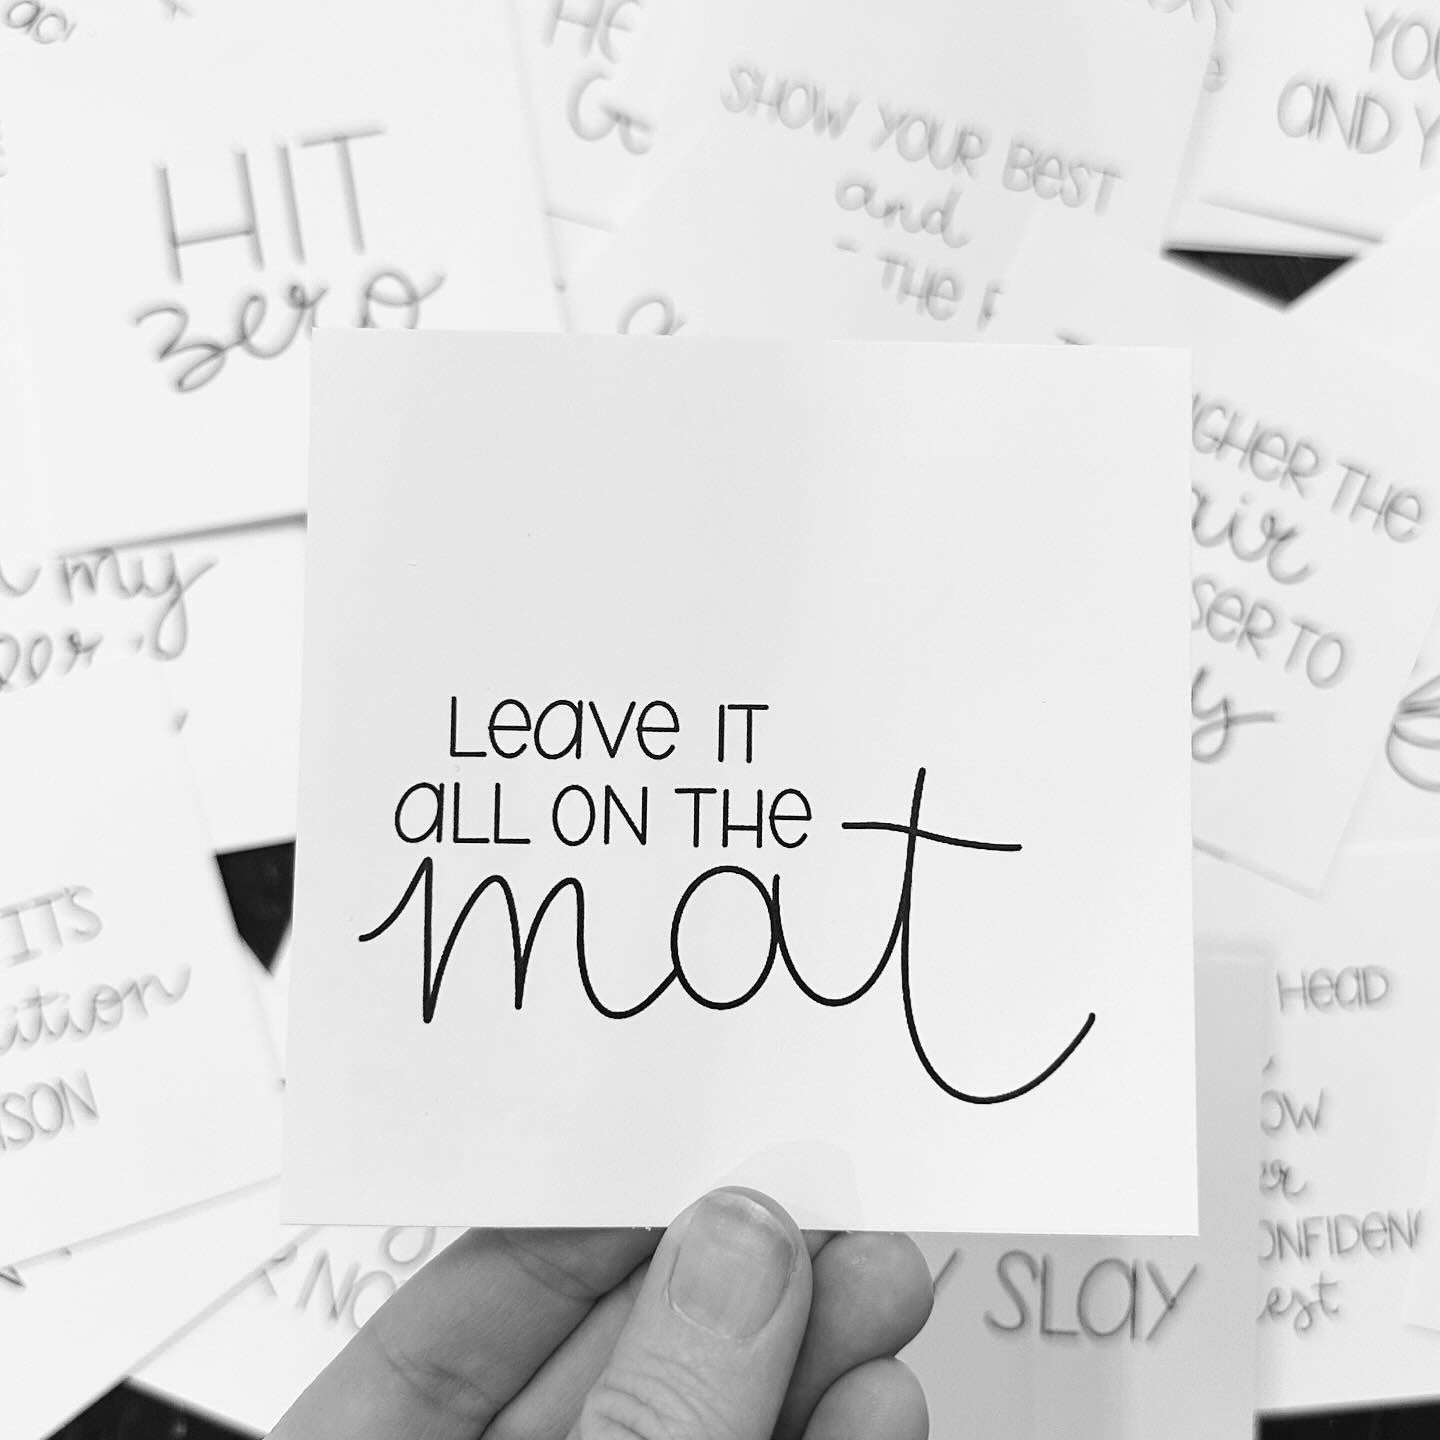 HIT
zero
HE
G
SHOW YOUR BEST
and
THE
YO
AND Y
LEAVE IT
ALL ON THE
mat
my
GHER THE
air
SER TO
y
IT'S
ition
SON
HEAD
OW
er
ONFIDENC
est
SLAY
NO